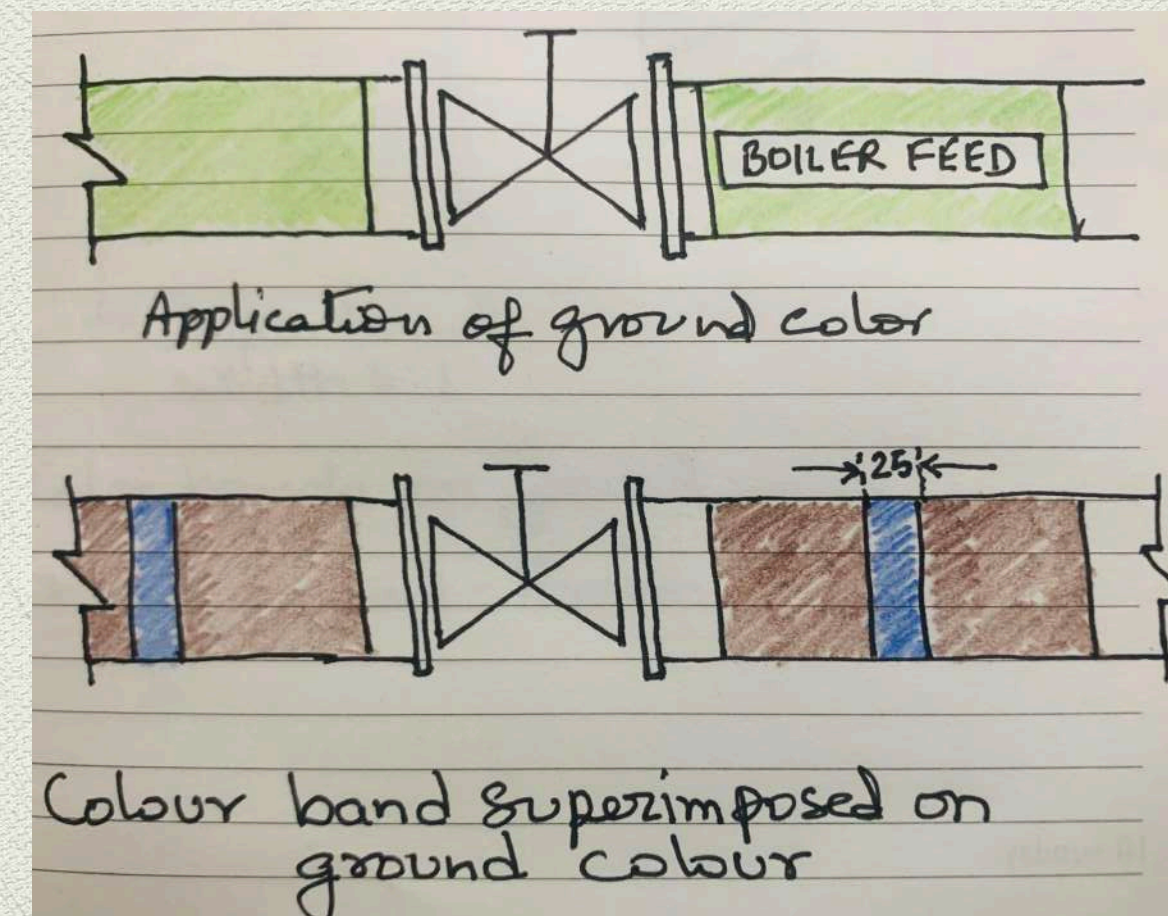 BOILER FEED
Application of ground color
25
Colour band superimposed on
ground colour